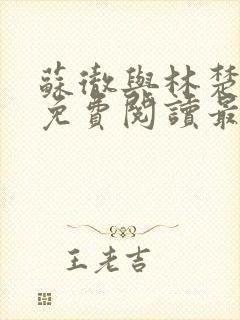 蘇徹與林楚
免費閱讀最
王老吉